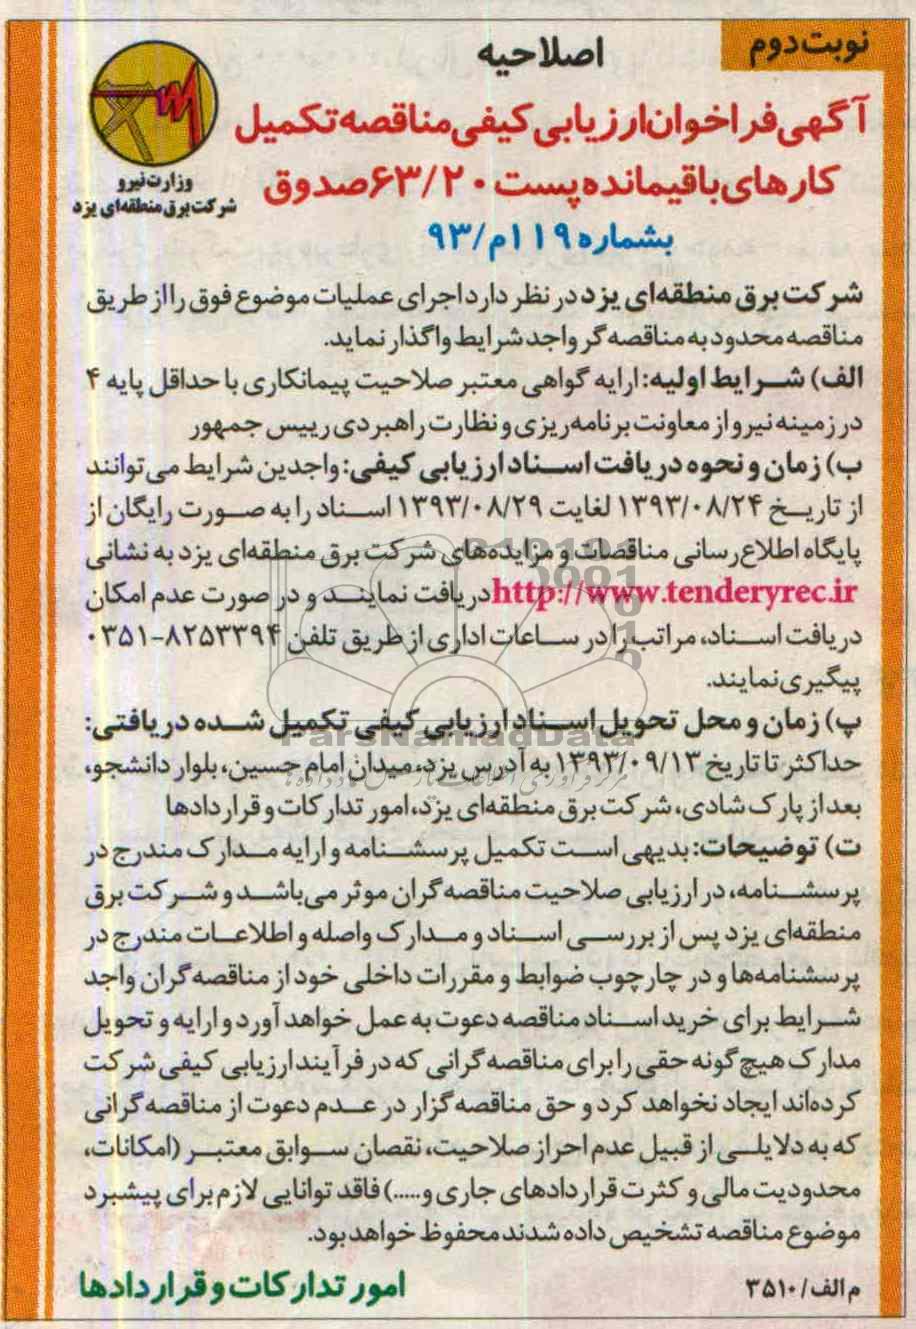 نوبت دوم
اصلاحیه
آگهی فراخوان ارزیابی کیفی مناقصه تکمیل
کارهای باقیمانده پست ۶۳/۲۰ صدوق
بشماره ۱۱۹م/۹۳
وزارت نیرو
شرکت برق منطقه‌ای یزد
شرکت برق منطقه‌ای یزد در نظر دارد اجرای عملیات موضوع فوق را از طریق
مناقصه محدود به مناقصه گر واجد شرایط واگذار نماید.
الف) شرایط اولیه: ارایه گواهی معتبر صلاحیت پیمانکاری با حداقل پایه ۴
در زمینه نیرو از معاونت برنامه‌ریزی و نظارت راهبردی رییس جمهور
ب) زمان و نحوه دریافت اسناد ارزیابی کیفی: واجدین شرایط می‌توانند
از تاریخ ۱۳۹۳/۰۸/۲۴ لغایت ۱۳۹۳/۰۸/۲۹ اسناد را به صورت رایگان از
پایگاه اطلاع‌رسانی مناقصات و مزایده‌های شرکت برق منطقه‌ای یزد به نشانی
http://www.tenderyrec.ir دریافت نمایند و در صورت عدم امکان
دریافت اسناد، مراتب را در ساعات اداری از طریق تلفن ۸۲۵۳۳۹۴-۰۳۵۱
پیگیری نمایند.
پ) زمان و محل تحویل اسناد ارزیابی کیفی تکمیل شده دریافتی:
حداکثر تا تاریخ ۱۳۹۳/۰۹/۱۳ به آدرس یزد، میدان امام حسین، بلوار دانشجو،
بعد از پارک شادی، شرکت برق منطقه‌ای یزد، امور تدارکات و قراردادها
ت) توضیحات: بدیهی است تکمیل پرسشنامه و ارایه مدارک مندرج در
پرسشنامه، در ارزیابی صلاحیت مناقصه گران موثر می‌باشد و شرکت برق
منطقه‌ای یزد پس از بررسی اسناد و مدارک واصله و اطلاعات مندرج در
پرسشنامه‌ها و در چارچوب ضوابط و مقررات داخلی خود از مناقصه گران واجد
شرایط برای خرید اسناد مناقصه دعوت به عمل خواهد آورد و ارایه و تحویل
مدارک هیچ گونه حقی را برای مناقصه گرانی که در فرآیند ارزیابی کیفی شرکت
کرده‌اند ایجاد نخواهد کرد و حق مناقصه گزار در عدم دعوت از مناقصه گرانی
که به دلایلی از قبیل عدم احراز صلاحیت، نقصان سوابق معتبر (امکانات،
محدودیت مالی و کثرت قراردادهای جاری و.....) فاقد توانایی لازم برای پیشبرد
موضوع مناقصه تشخیص داده شدند محفوظ خواهد بود.
م الف/۳۵۱۰
امور تدارکات و قراردادها
ParsNamadData